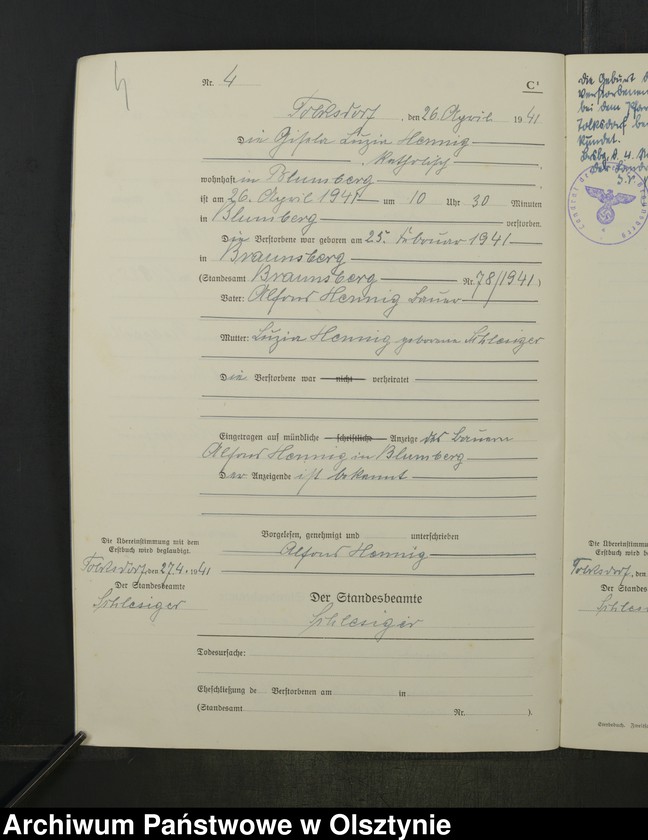 Nr. 4
C¹
Tolksdorf, den 26. April 1941
Die Gisela Luzia Hennig
, Katholisch
wohnhaft in Blumberg
ist am 26. April 1941 um 10 Uhr 30 Minuten
in Blumberg verstorben.
Die Verstorbene war geboren am 25. Februar 1941
in Braunsberg
(Standesamt Braunsberg Nr. 78/1941)
Vater: Alfons Hennig Bauer
Mutter: Luzia Hennig geborene Schlesiger
Die Verstorbene war nicht verheiratet
Eingetragen auf mündliche schriftliche Anzeige des Bauern
Alfons Hennig in Blumberg
Der Anzeigende ist bekannt
Vorgelesen, genehmigt und unterschrieben
Alfons Hennig
Die Übereinstimmung mit dem
Erstbuch wird beglaubigt.
Tolksdorf, den 27.4. 1941
Der Standesbeamte
Schlesiger
Der Standesbeamte
Schlesiger
Todesursache:
Eheschließung de Verstorbenen am in
(Standesamt Nr. ).
die Geburt
verstorbenen
bei dem
Tolksdorf
kundet.
Die Übereinstimmu
Erstbuch wird b
Tolksdorf, den
Der Standes
Schles
Archiwum Państwowe w Olsztynie